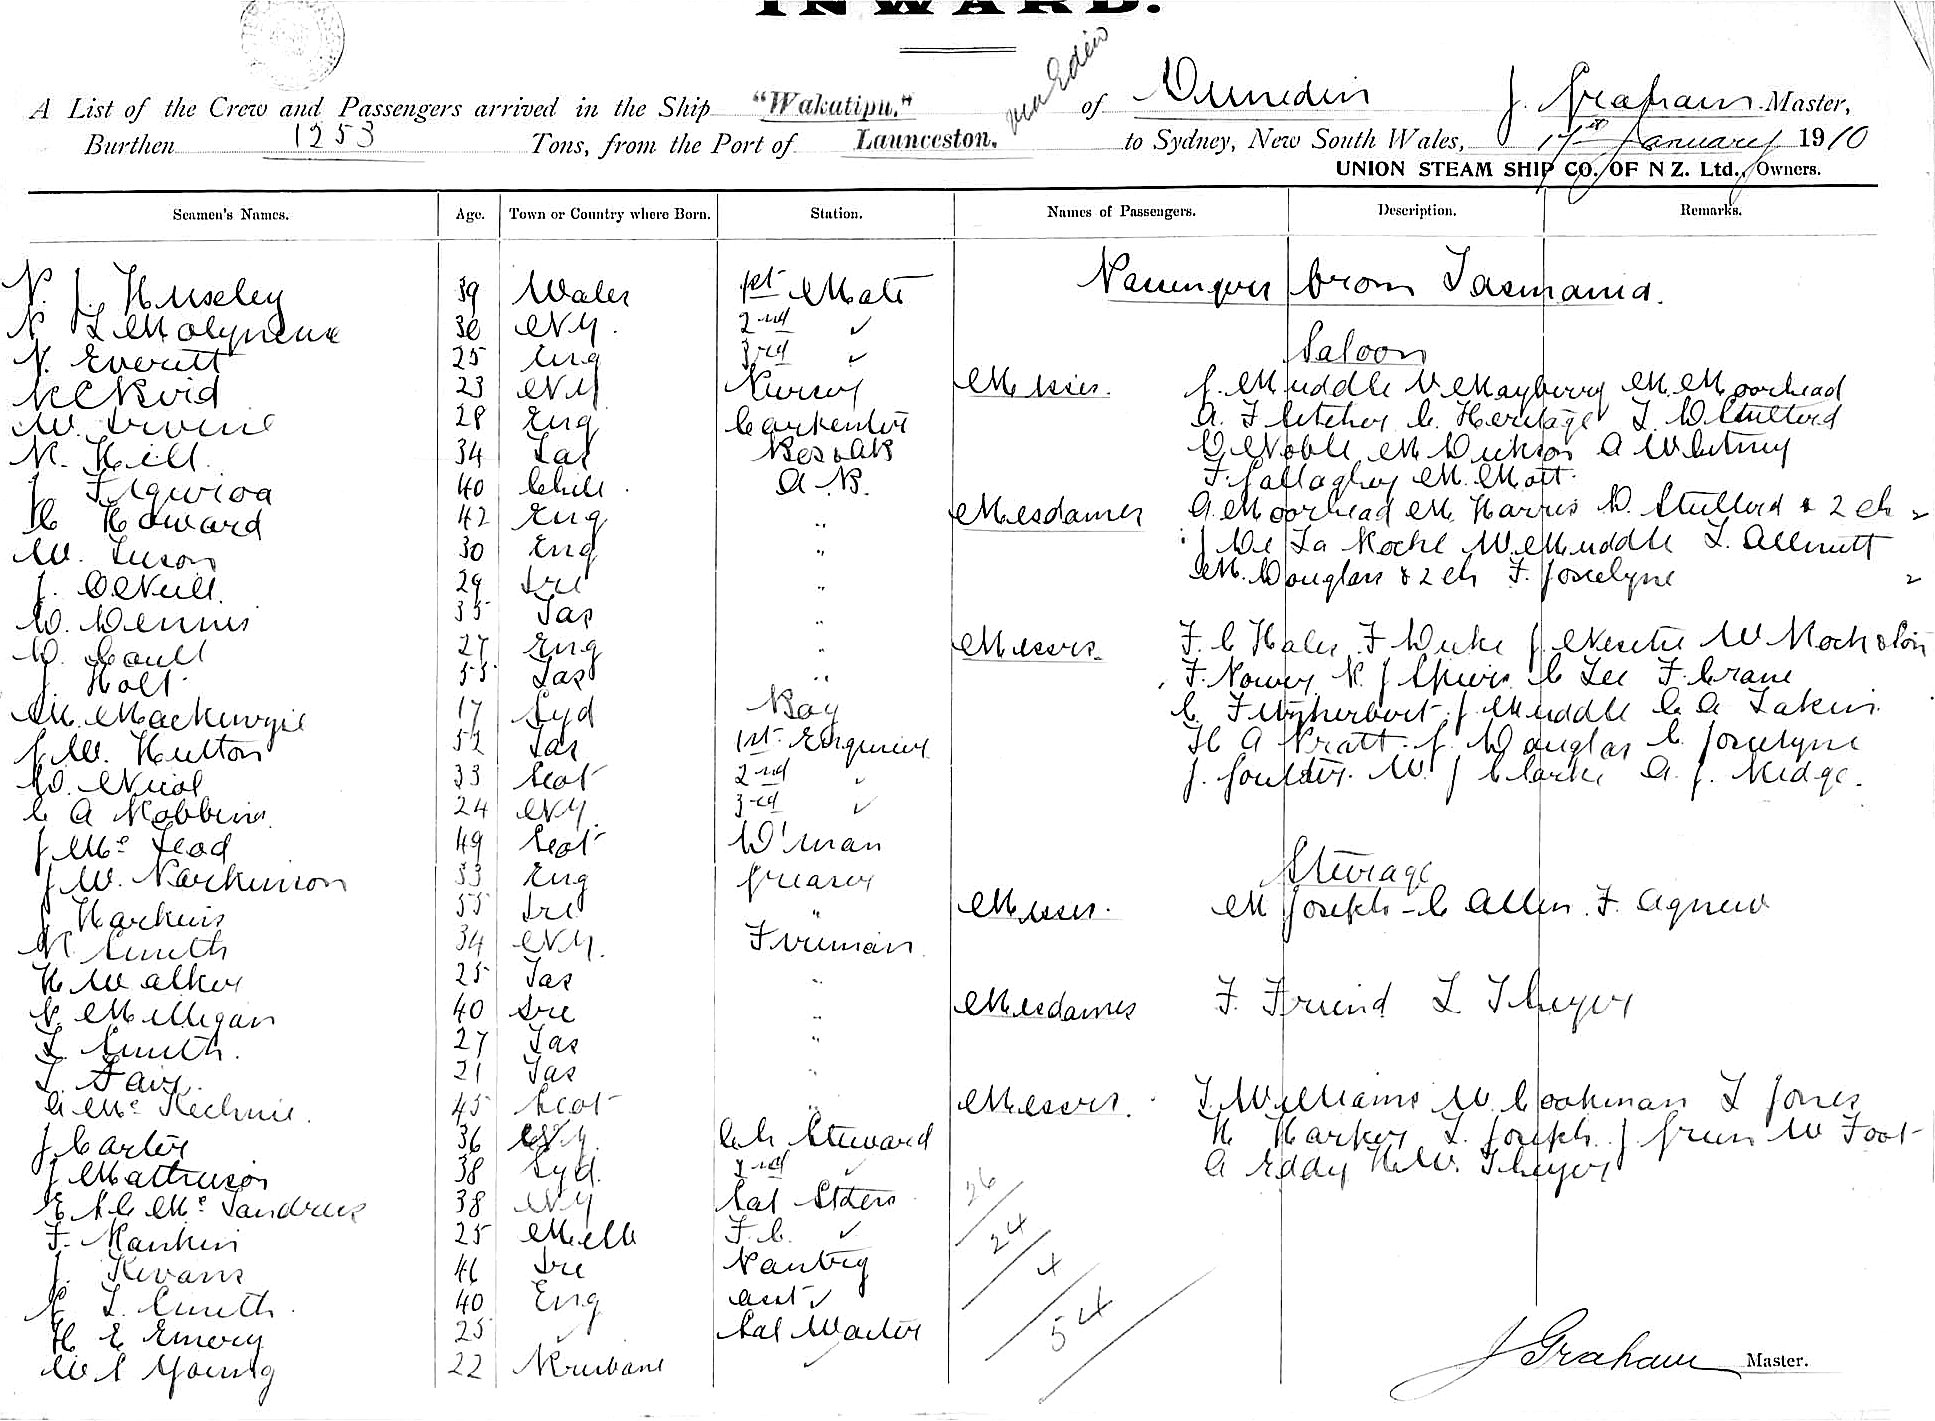 INWARD.
via Eden
A List of the Crew and Passengers arrived in the Ship "Wakatipu," of Dunedin J. Graham Master,
Burthen 1253 Tons, from the Port of Launceston, to Sydney, New South Wales, 17th January 1910
UNION STEAM SHIP CO. OF N Z. Ltd., Owners.
Seamen's Names. Age. Town or Country where Born. Station. Names of Passengers. Description. Remarks.
P. J. Huseley 39 Wales 1st Mate
Passengers from Tasmania.
30 NZ. 2nd ✓
N. Everett 25 Eng 3rd ✓
Saloon
23 NZ Purser Messrs. J. Muddle V Mayberry M. Moorhead
W. Irvine 28 Eng Carpenter A. Fletcher C. Heritage
R. Hill. 34 Tas Bos & AB D Noble M Dickson A Whitney
J Figuroa 40 Chili. A.B. F. Gallagher M. Mott.
H Howard 42 Eng " Mesdames A. Moorhead M. Harris & 2 ch 2
W. Tuson 30 Eng " J De La Roche W Muddle L. Allnutt
J. O'Neill. 29 Ire " M. Douglas & 2 ch F. Joscelyne 2
D. Dennis 35 Tas "
D. Coull 27 Eng " Messrs. F. C Hales F Duke W Rock & Son
J. Holt 55 Tas " F. Power R. J Spiers C Lee F. Crane
M. Mackenzie 17 Syd Boy C. Fitzherbert J Muddle C A Lakin
J. W. Hutton 52 Tas 1st Engineer H A Pratt. J. Douglas C. Joscelyne
D. Nicol 33 Scot 2nd ✓ J. Goulder. W. J Clarke A. J. Ridge.
C A Robbins 24 NZ. 3rd ✓
J. Mc Leod 49 Scot D'man
Sterage
J. W. Parkinson 33 Eng Greaser
J Harkins 55 Ire " Messrs. M Joseph - C Allen. F. Agnew
R. Smith 34 NZ. Fireman
H Walker 25 Tas "
P. Milligan 40 Ire " Mesdames F. Friend L Theyer
L. Smith. 27 Tas "
21 Tas "
A Mc Kechnie. 45 Scot " Messrs. T. Williams W. Cookman L Jones
J Carter 36 NZ. Ch Steward H Harker L. Joseph. J Green W Foot
J Mathieson 38 Syd. 2nd ✓ A Eddy H W. Theyer
38 NZ Sal Stdess
F. Rankin 25 Melb F. C. ✓
J. Kevans 46 Ire Pantry
L. Smith. 40 Eng Asst ✓
H E Emery 25 ✓ Sal Waiter
W S Young 22 Brisbane ✓
26
24
4
54
J Graham Master.